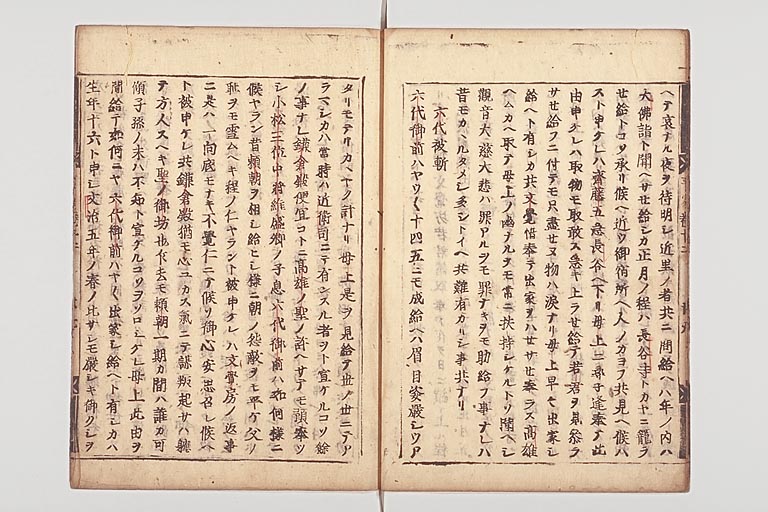 ヘテ哀ナル夜ヲ待明シ近里ノ者共ニ問給ヘハ年ノ内ハ
大佛詣ト聞ヘサセ給シカ正月ノ程ハ長谷寺トカヤニ籠ラ
セ給トコソ承リ候ヘ近ウ御宿所ヘ人ノカヨフ共見ヘ候ハ
スト申ケレハ齋藤五急長谷ヘトリ母上ニ尋子逢奉テ此
由申ケレハ取物モ取敢ス急キ上ラセ給テ若君ヲ見奉ラ
サセ給フニ付テモ只盡セヌ物ハ涙ナリ母上早モ出家シ
給ヘト有シカ共文覺惜奉テ出家ヲハセサセ奉ラス高雄
ヘムカヘ取テ母上ノ幽ナルヲモ常ニ扶持シケルトソ聞ヘシ
觀音大慈大悲ハ罪アルヲモ罪ナキヲモ助給フ事ナレハ
昔モカヽルタメシ多シトイヘ共難有カリシ事共ナリ
六代被斬
六代御前ハヤウく十四五ニモ成給ヘハ眉目姿嚴シウア
タリモテリカヽヤク計ナリ母上是ヲ見給テ世ノ世ニテア
ラマシカハ當時ハ近衛司ニテ有ンスル者ヲト宣ケルコソ餘
ノ事ナレ鎌倉殿便宜コトニ高雄ノ聖ノ許ヘサテモ預奉ツ
シ小松三位中將維盛卿ノ子息六代御前ハ如何樣ニ
候ヤラン昔頼朝ヲ相シ給ヒシ樣ニ朝ノ怨敵ヲモ平ケ父ノ
耻ヲモ雪ムヘキ程ノ仁ヤラント被申ケレハ文覺房ノ返事
ニ是ハ一向底モナキ不覺仁ニテ候ソ御心安思召レ候ヘ
ト被申ケレ共鎌倉殿猶モ心ユカス氣ニテ謀叛起サハ軈
テ方人スヘキ聖ノ御坊也乍去モ頼朝一期カ間ハ誰カ可
傾子孫ノ末ハ不知ト宣ケルコソヲソロシケレ母上此由ヲ
聞給テ如何ニヤ六代御前ハヤく出家シ給ヘト有シカハ
生年十六ト申シ文治五年ノ春ノ比サシモ嚴シキ御クシヲ